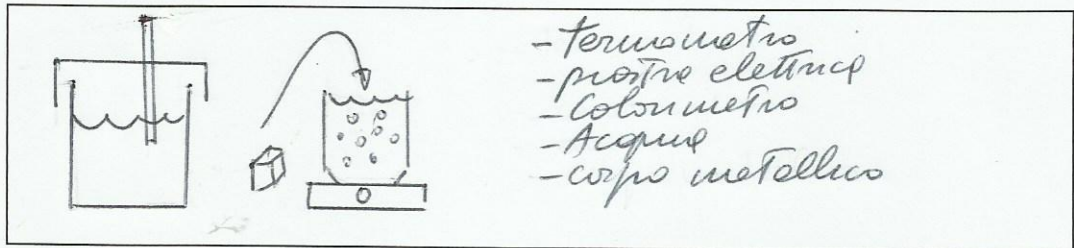 - Termometro
- piastra elettrica
- Calorimetro
- Acqua
- corpo metallico